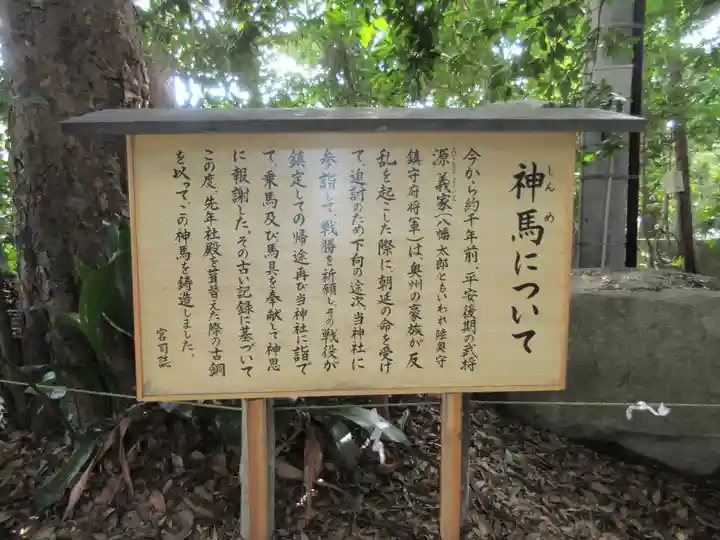 神馬について
しんめ
今から約千年前、平安後期の武将
源義家(八幡太郎ともいわれ陸奥守
鎮守府将軍)は、奥州の豪族が反
乱を起こした際に、朝廷の命を受け
て、追討のため下向の途次、当神社に
参詣して、戦勝を祈願し、その戦役が
鎮定しての帰途再び当神社に詣で
て、乗馬及び馬具を奉献して神恩
に報謝した。その古い記録に基づいて
この度、先年社殿を葺替えた際の古銅
を以って、この神馬を鋳造しました。
宮司誌